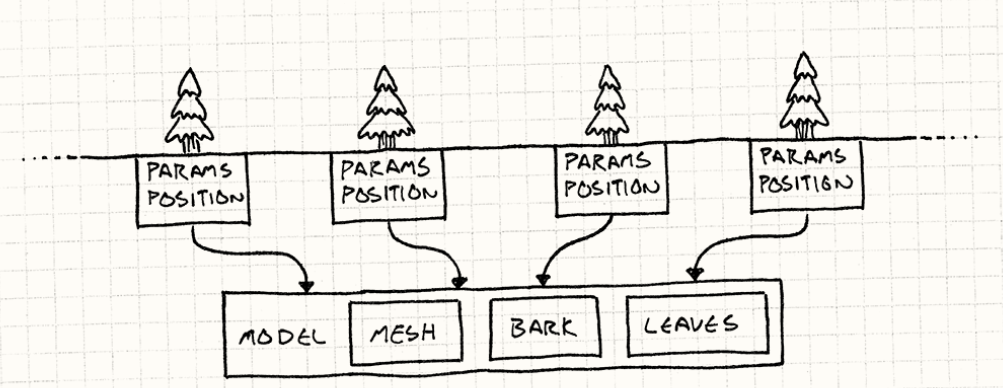 PARAMS
POSITION
PARAMS
POSITION
PARAMS
POSITION
PARAMS
POSITION
MODEL MESH BARK LEAVES